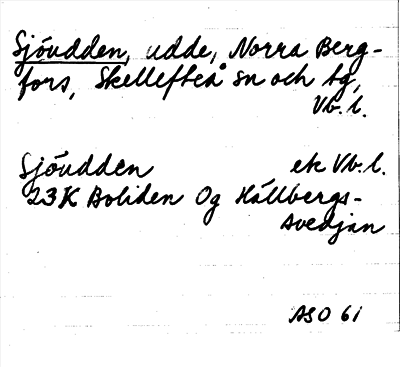 Sjöudden, udde, Norra Berg-
fors, Skellefteå sn och tg,
Vb. l.
Sjöudden ek Vb. l.
23K Boliden Og Hällbergs-
Avedjan
ASO 61